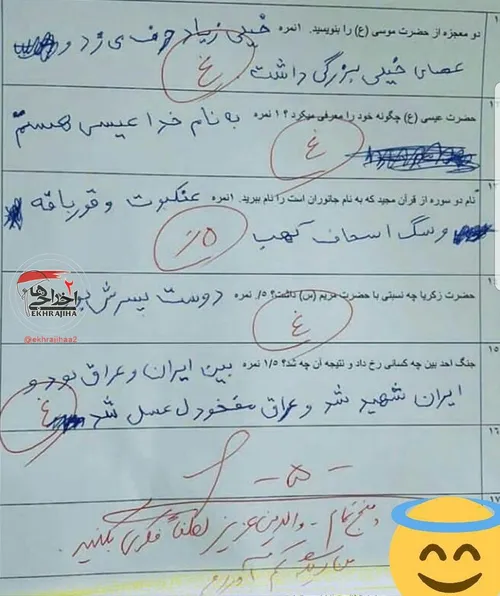 دو معجزه از حضرت موسی (ع) را بنویسید. ۱نمره خیلی زیاد حرف می زد و
عصای خیلی بزرگی داشت.
غ
حضرت عیسی (ع) چگونه خود را معرفی میکرد ؟ ۱ نمره به نام خدا عیسی هستم
غ
نام دو سوره از قرآن مجید که به نام جانوران است را نام ببرید. ۱نمره عنکبوت و قورباقه
و سگ اسحاف کهب
۵/.
حضرت زکریا چه نسبتی با حضرت مریم (س) داشت؟ ۵/. نمره دوست پسرش بو
غ
اخراجی‌ها ۲
EKHRAJIHA
@ekhrajihaa2
۱۵
جنگ احد بین چه کسانی رخ داد و نتیجه آن چه شد؟ ۱/۵ نمره بین ایران و عراق بود و
ایران شهید شد و عراق مفخودل عسل شد
غ
۱۶
- ۵ -
۱۷
پنج تمام - والدین عزیز لطفاً فکری بکنید.